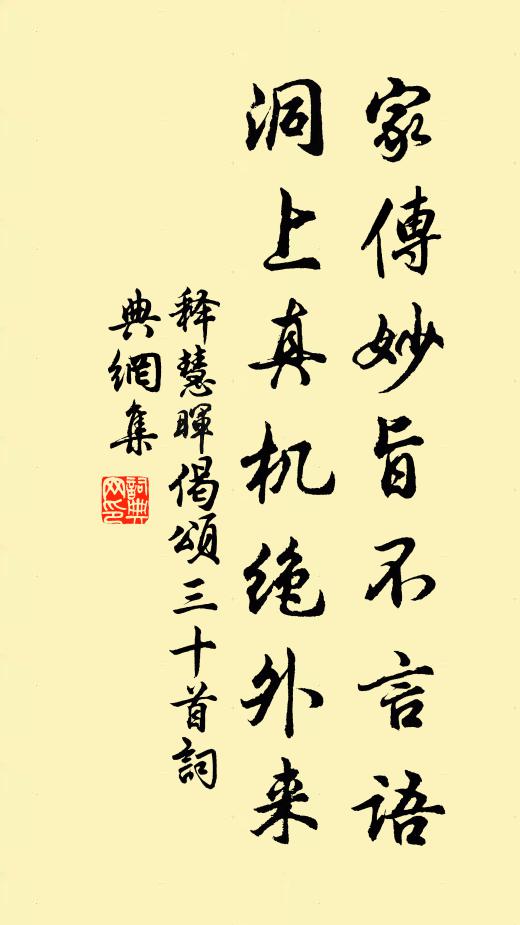 家傳妙旨不言語
洞上真机絶外来
释慧暉偈頌三十首詞
典網集
詞典
网印